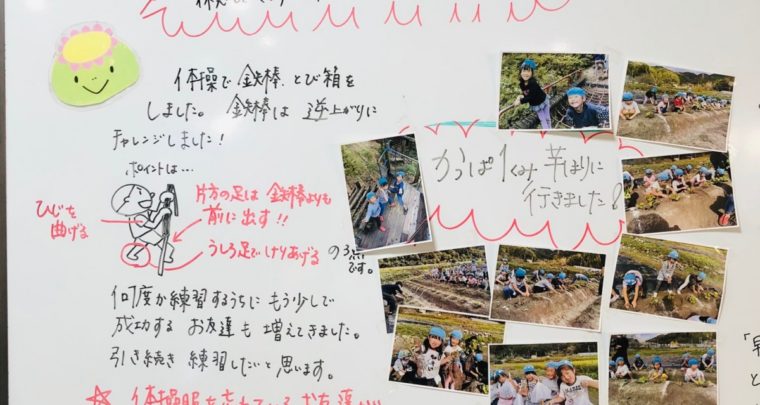 体操で 鉄棒、とび箱を
しました。 鉄棒は 逆上がりに
チャレンジしました!
ポイントは…
ひじを
曲げる
片方の足は 鉄棒よりも
前に出す!!
うしろ足でけりあげる
の3点
です。
何度か練習するうちに もう少しで
成功する お友達も 増えてきました。
引き続き 練習したいと思います。
☆ 体操服を忘れている お友達
かっぱ1くみ 芋ほりに
行きました!